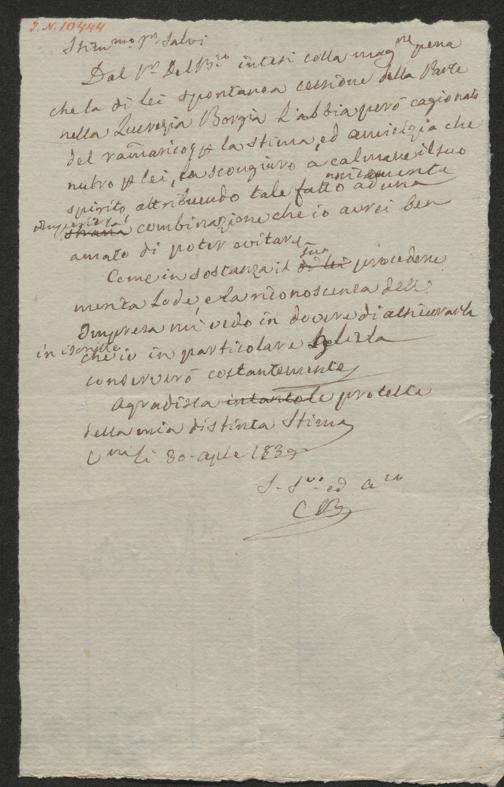 I.N. 10444
Stim^mo Sr Salvi
Dal Sr Del intesi colla mag^re pena
che la di Lei spontanea cessione della Parte
nella Lucrezia Borgia L'abbia però cagionato
del rammarico, la stima, ed amicizia che
nutro Lei, La scongiuro a calmare il suo
spirito attribuendo tale fatto unicamente ad una
strana combinazione che io avrei ben
amato di poter evitare
Come in sostanza il suo di lei procedere
merita Lode e la riconoscenza dell'
Impresa mi vedo in dovere di assicurarla
in iscritto che io in particolare
conserverò costantemente
Agradisca intanto le proteste
della mia distinta Stima
li 30 aple 1839